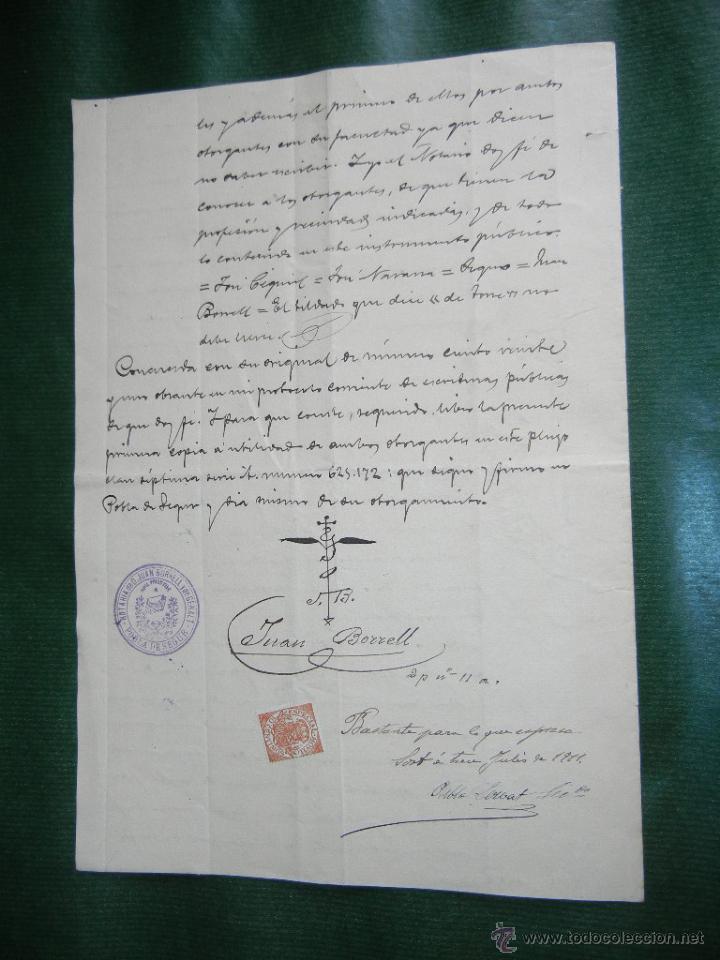 les y además el primero de ellos por ambos
otorgantes con su facultad ya que dicen
no saber escribir. Y yo el Notario doy fé de
conocer a los otorgantes, de que tienen la
profesión y vecindad indicadas, y de todo
lo contenido en este instrumento público.
= José = José Navarra = Signo = Juan
Borrell = El tildado que dice « de Jone » no
debe leerse.
Concuerda con su original de número ciento veinte
y uno obrante en mi protocolo corriente de escrituras públicas
de que doy fe. Y para que conste, requerido, libro la presente
primera copia a utilidad de ambos otorgantes en este pliego
clase séptima serie A. numero 625.172; que signo y firmo en
Pobla de Segur y dia mismo de su otorgamiento.
J. B.
Juan Borrell
NOTARIA DE D. JUAN BORRELL
POBLA DE SEGUR
Bastante para lo que expresa
Sort á trece Julio de 1901.
Pablo
www.todocoleccion.net